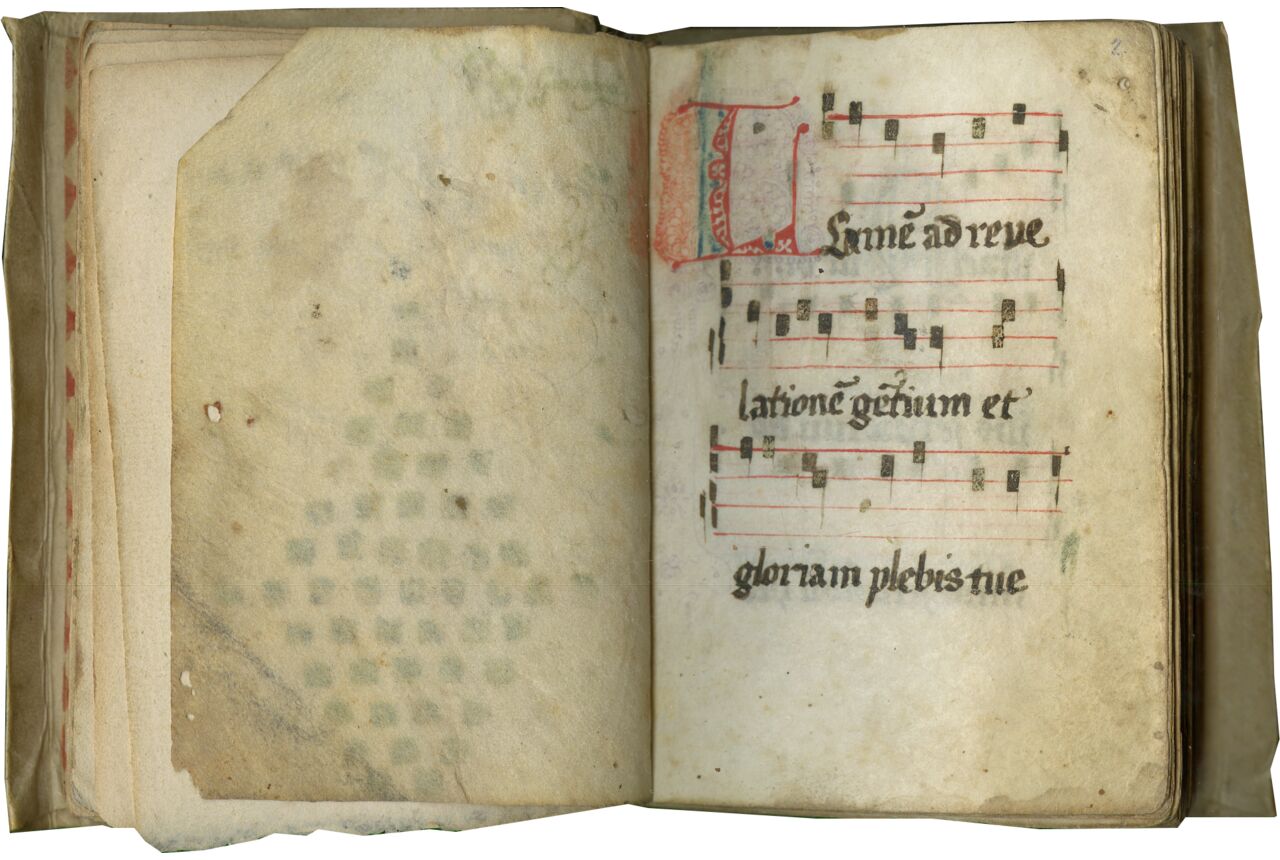 2
Lumẽ ad reve
lationẽ gẽtium et
gloriam plebis tue